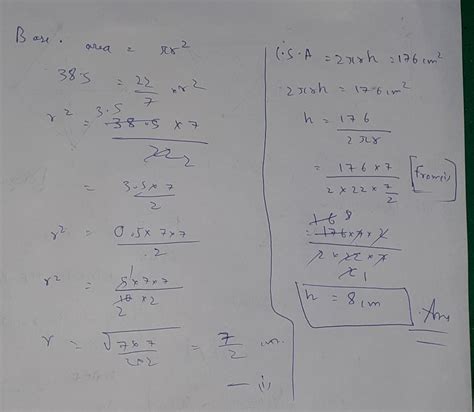 Base.
area = πr²
38.5 = 22/7 × r²
r² = 3.5 38.5 × 7 / 22 2
= 3.5 × 7 / 2
r² = 0.5 × 7 × 7 / 2
r² = 5 1 × 7 × 7 / 10 2 × 2
r = √(7 × 7 / 2 × 2) = 7/2 cm.
— (i)
C.S.A = 2πrh = 176 cm²
2πrh = 176 cm²
h = 176 / 2πr
= 176 × 7 / 2 × 22 × 7/2 [From (i)]
16 8
= 176 × 7 × 2 / 2 × 22 × 7
2 1
h = 8 cm Ans